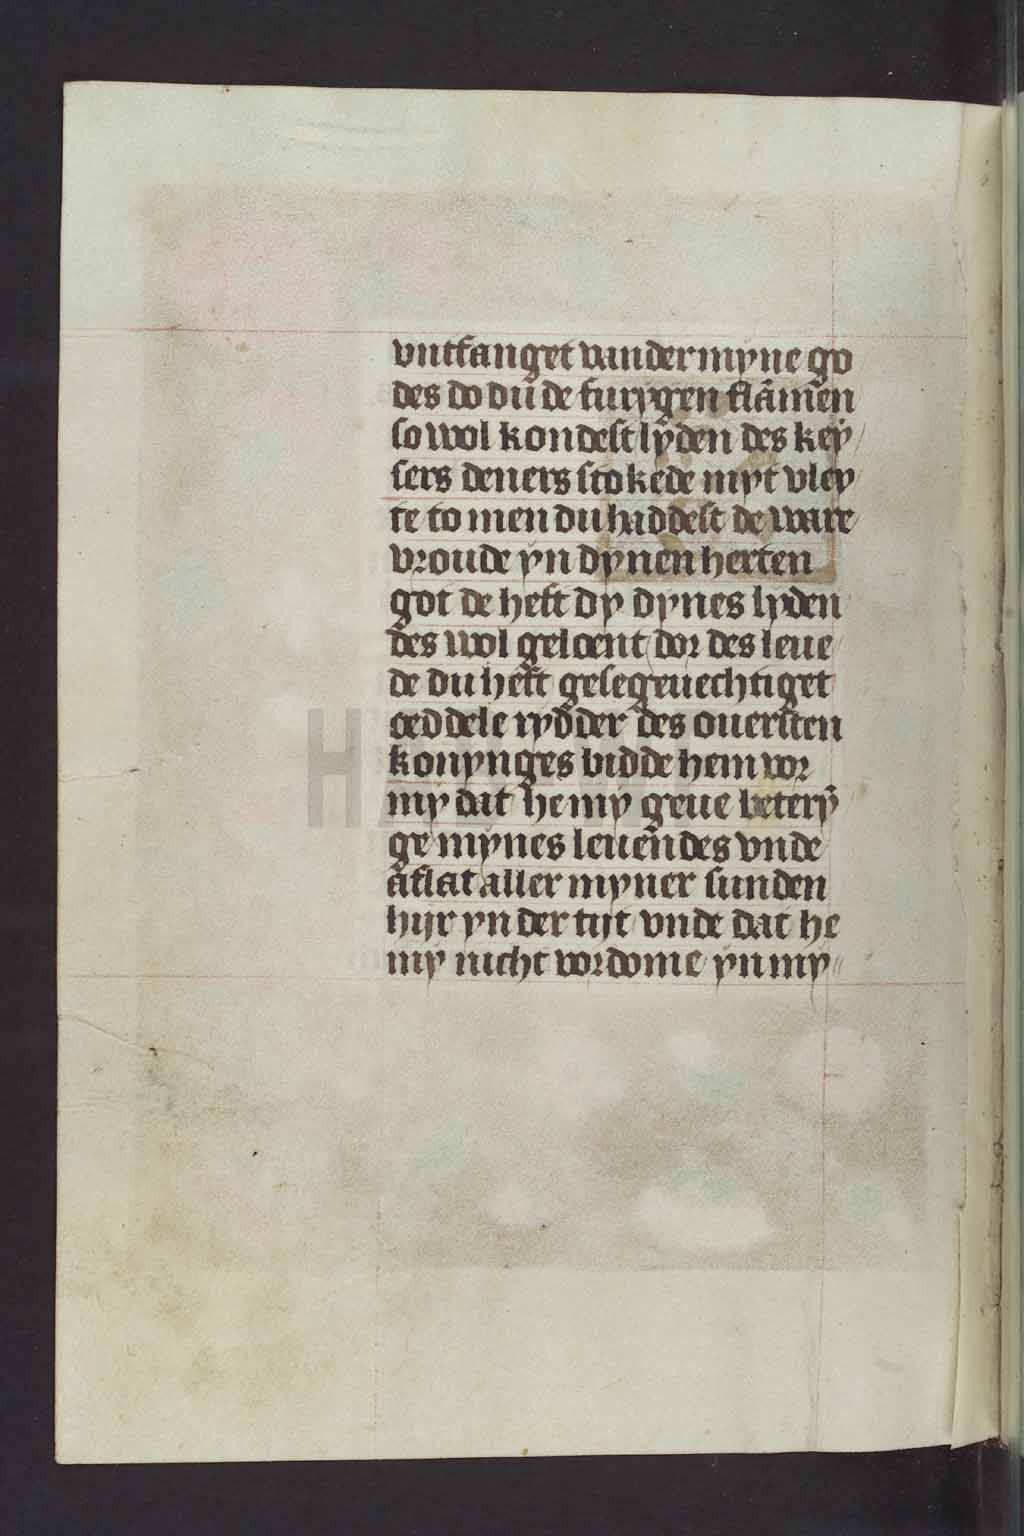 vntfanget van der myne go
des do dů de furygen flāmen
so wol kondest lyden des key/
sers deners stokede myt vley
te to men du haddest de ware
vroude yn dynen herten
got de heft dy dynes lyden
des wol geloent dor des leue
de du heft gesegeuechtiget
oeddele rydder des ouersten
konynges bidde hem vor
my dat he my geue beterȳ
ge mynes leuēndes vnde
āflat aller myner sunden
hijr yn der tijt vnde dat he
my nicht vordome yn my//